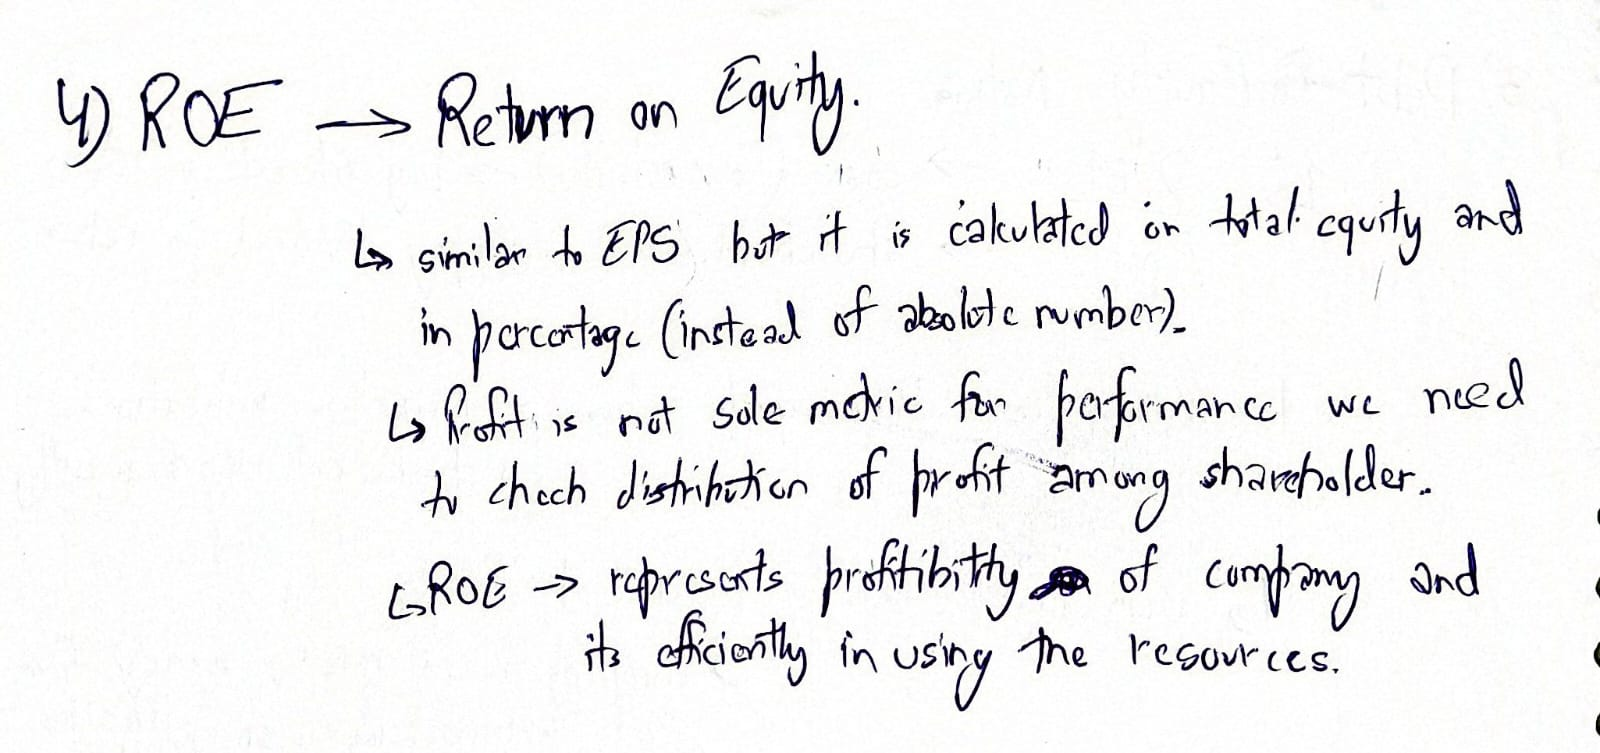 4) ROE → Return on Equity.
↳ similar to EPS but it is calculated on total equity and
in percentage (instead of absolute number).
↳ Profit is not sole metric for performance we need
to chech distribution of profit among shareholder.
↳ ROE → represents profitibitty of company and
its efficiently in using the resources.